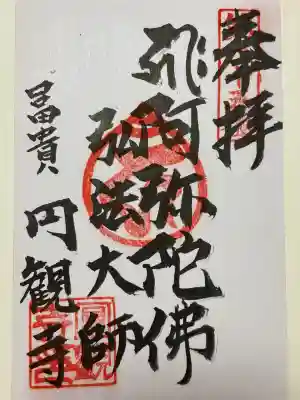 奉拝
阿弥陀佛
弘法大師
冨貴
円観寺